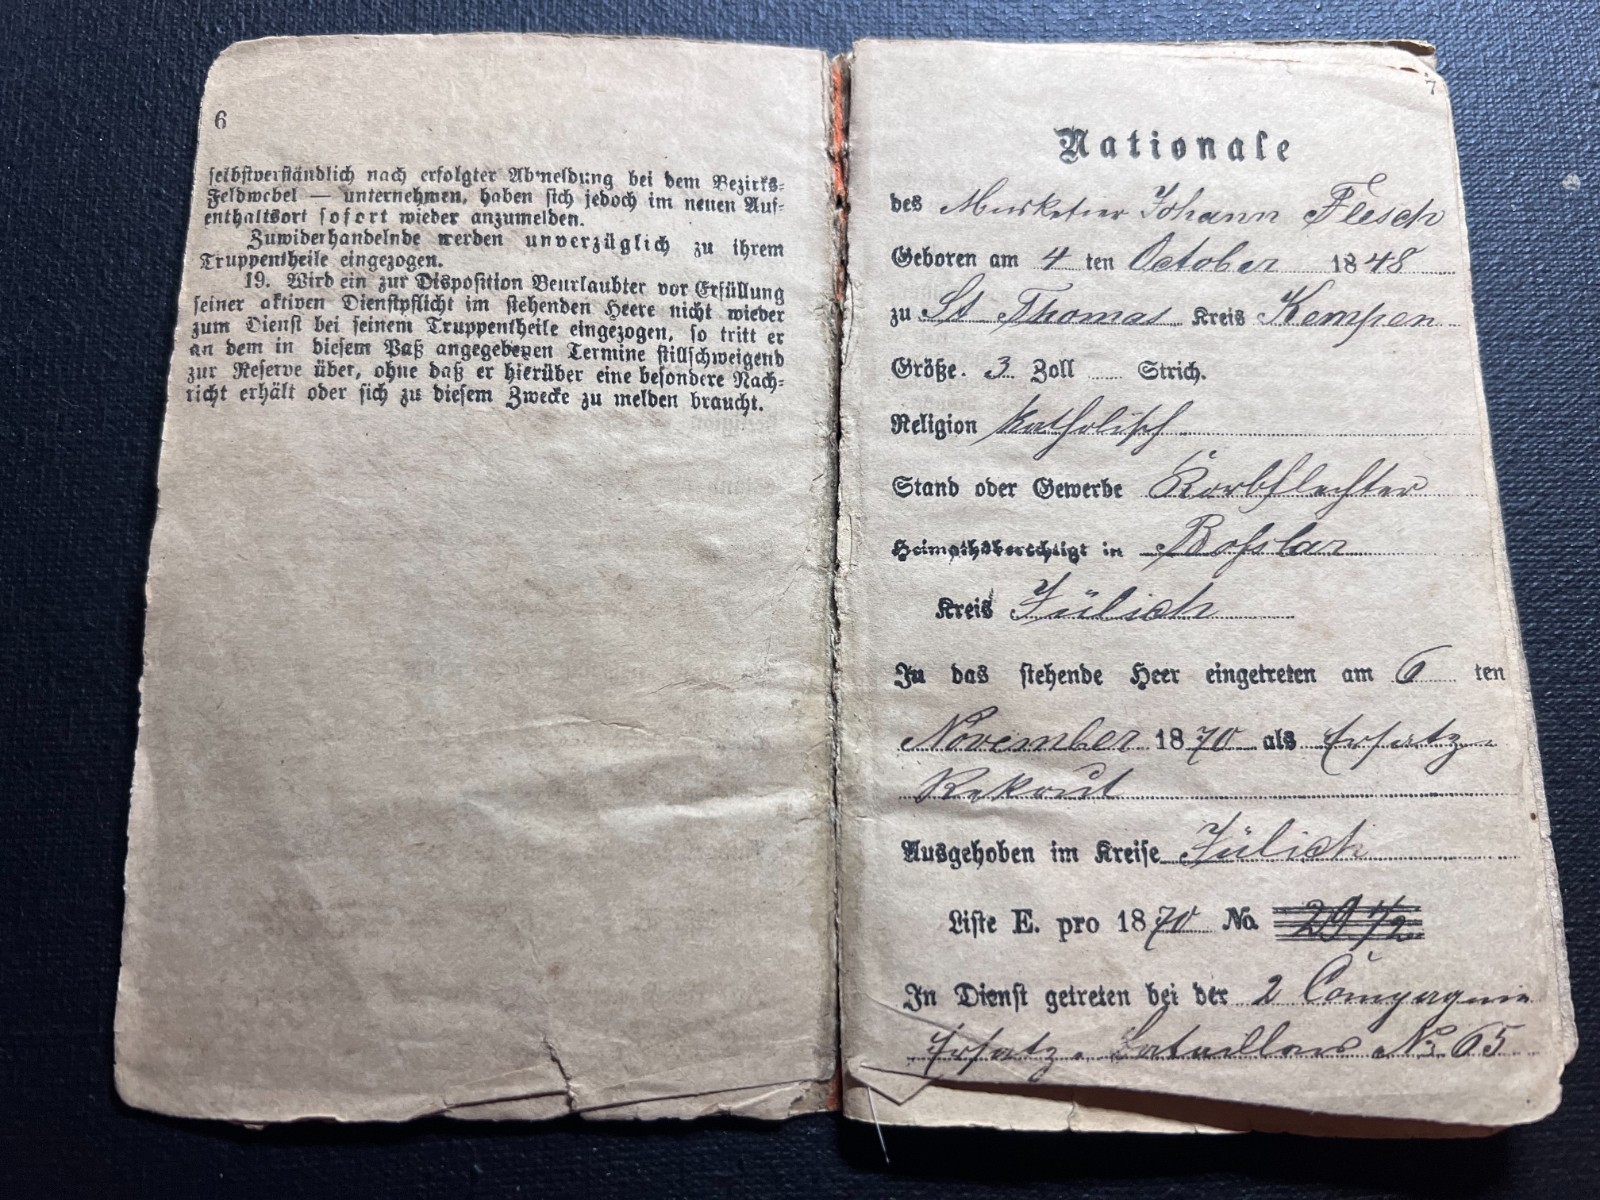 6
selbstverständlich nach erfolgter Abmeldung bei dem Bezirks-
Feldwebel — unternehmen, haben sich jedoch im neuen Auf-
enthaltsort sofort wieder anzumelden.
Zuwiderhandelnde werden unverzüglich zu ihrem
Truppentheile eingezogen.
19. Wird ein zur Disposition Beurlaubter vor Erfüllung
seiner aktiven Dienstpflicht im stehenden Heere nicht wieder
zum Dienst bei seinem Truppentheile eingezogen, so tritt er
an dem in diesem Paß angegebenen Termine stillschweigend
zur Reserve über, ohne daß er hierüber eine besondere Nach-
richt erhält oder sich zu diesem Zwecke zu melden braucht.
7
Nationale
des Musketier Johann Flesch
Geboren am 4 ten October 1848
zu St Thomas Kreis Kempen
Größe. 3 Zoll Strich.
Religion katholisch
Stand oder Gewerbe Korbflechter
Heimathsberechtigt in Boslar
Kreis Jülich
In das stehende Heer eingetreten am 6 ten
November 1870 als Ersatz-
Rekrut
Ausgehoben im Kreise Jülich
Liste E. pro 1870 No.
In Dienst getreten bei der 2 Compagnie
Ersatz-Bataillons No 65